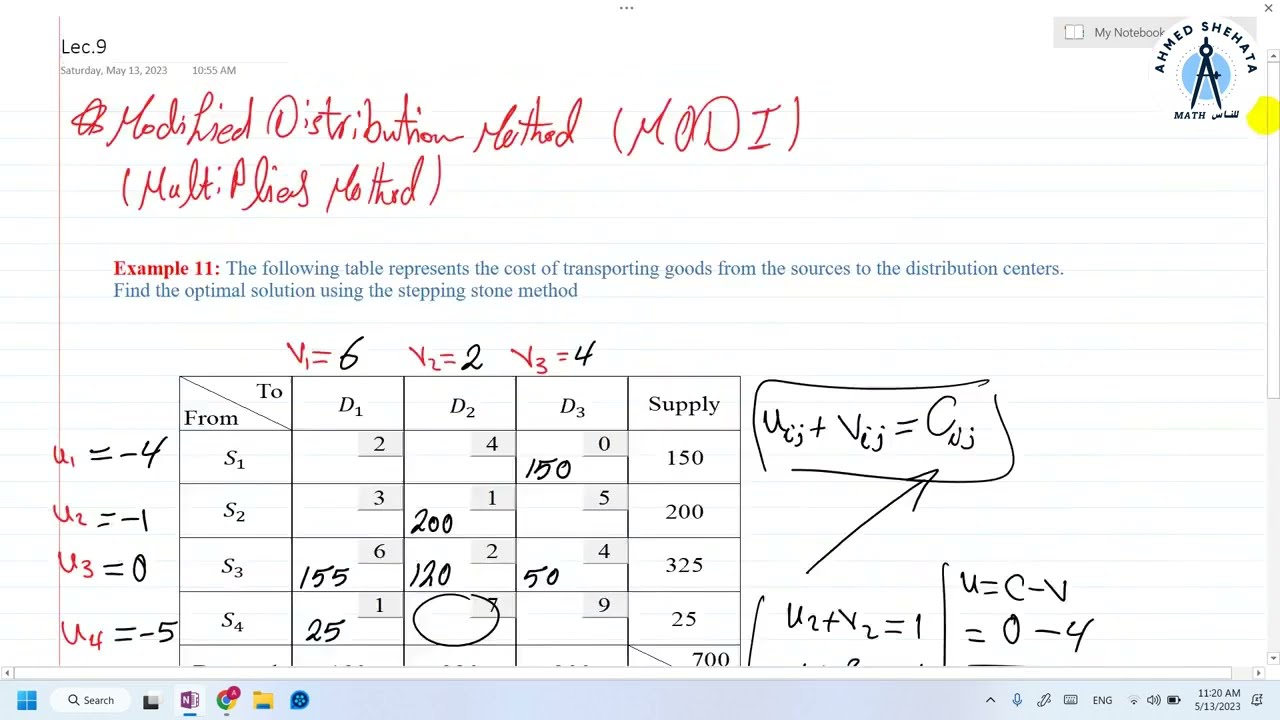 Lec.9
My Notebook
AHMED SHEHATA
MATH للناس
Saturday, May 13, 2023 10:55 AM
Modified Distribution Method (MODI)
(Multipliers Method)
Example 11: The following table represents the cost of transporting goods from the sources to the distribution centers.
Find the optimal solution using the stepping stone method
V1=6 V2=2 V3=4
To
From D1 D2 D3 Supply
u1=-4 S1 2 4 0 150 150
u2=-1 S2 3 1 200 5 200
u3=0 S3 6 155 2 120 4 50 325
u4=-5 S4 1 25 7 9 25
700
Uij+Vij=Cij
U2+V2=1
U=C-V
=0-4
Search
ENG
11:20 AM
5/13/2023